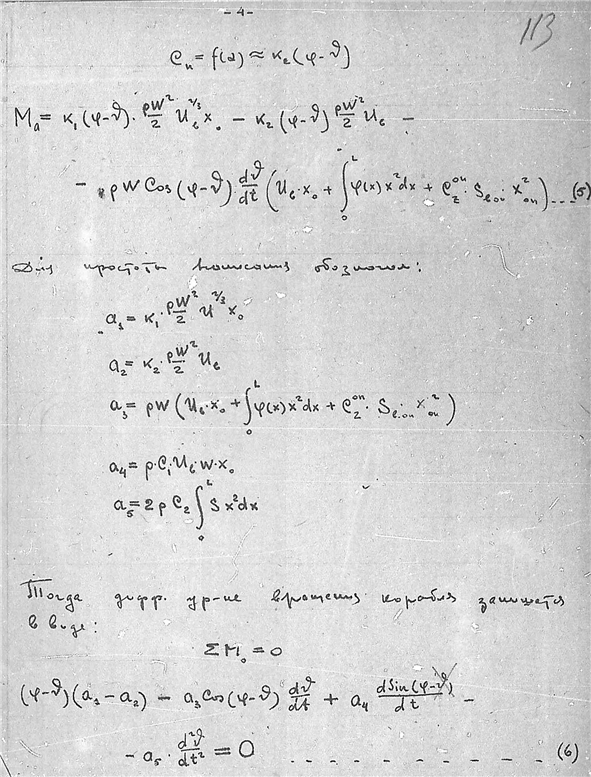 - 4 -
113
C_н = f(α) ≈ κ_2(φ-ϑ)
M_a = κ_1(φ-ϑ) · ρW²/2 U_в^{2/3} x_0 - κ_2(φ-ϑ) ρW²/2 U_в -
- ρW Cos(φ-ϑ) dϑ/dt (U_в · x_0 + ∫_0^L φ(x) x² dx + C_z^{оп} · S_{в.оп} · x_{оп}²) ... (5)
Для простоты написания обозначим:
a_1 = κ_1 · ρW²/2 U^{2/3} x_0
a_2 = κ_2 · ρW²/2 U_в
a_3 = ρW (U_в · x_0 + ∫_0^L φ(x) x² dx + C_z^{оп} · S_{в.оп} · x_{оп}²)
a_4 = ρ · C_1 · U_в · W · x_0
a_5 = 2ρ C_2 ∫_0^L S x² dx
Тогда дифф. ур-ие вращения корабля запишется
в виде:
ΣM_0 = 0
(φ-ϑ)(a_1 - a_2) - a_3 Cos(φ-ϑ) dϑ/dt + a_4 dSin(φ-ϑ)/dt -
- a_5 · d²ϑ/dt² = 0 . . . . . . . . . (6)